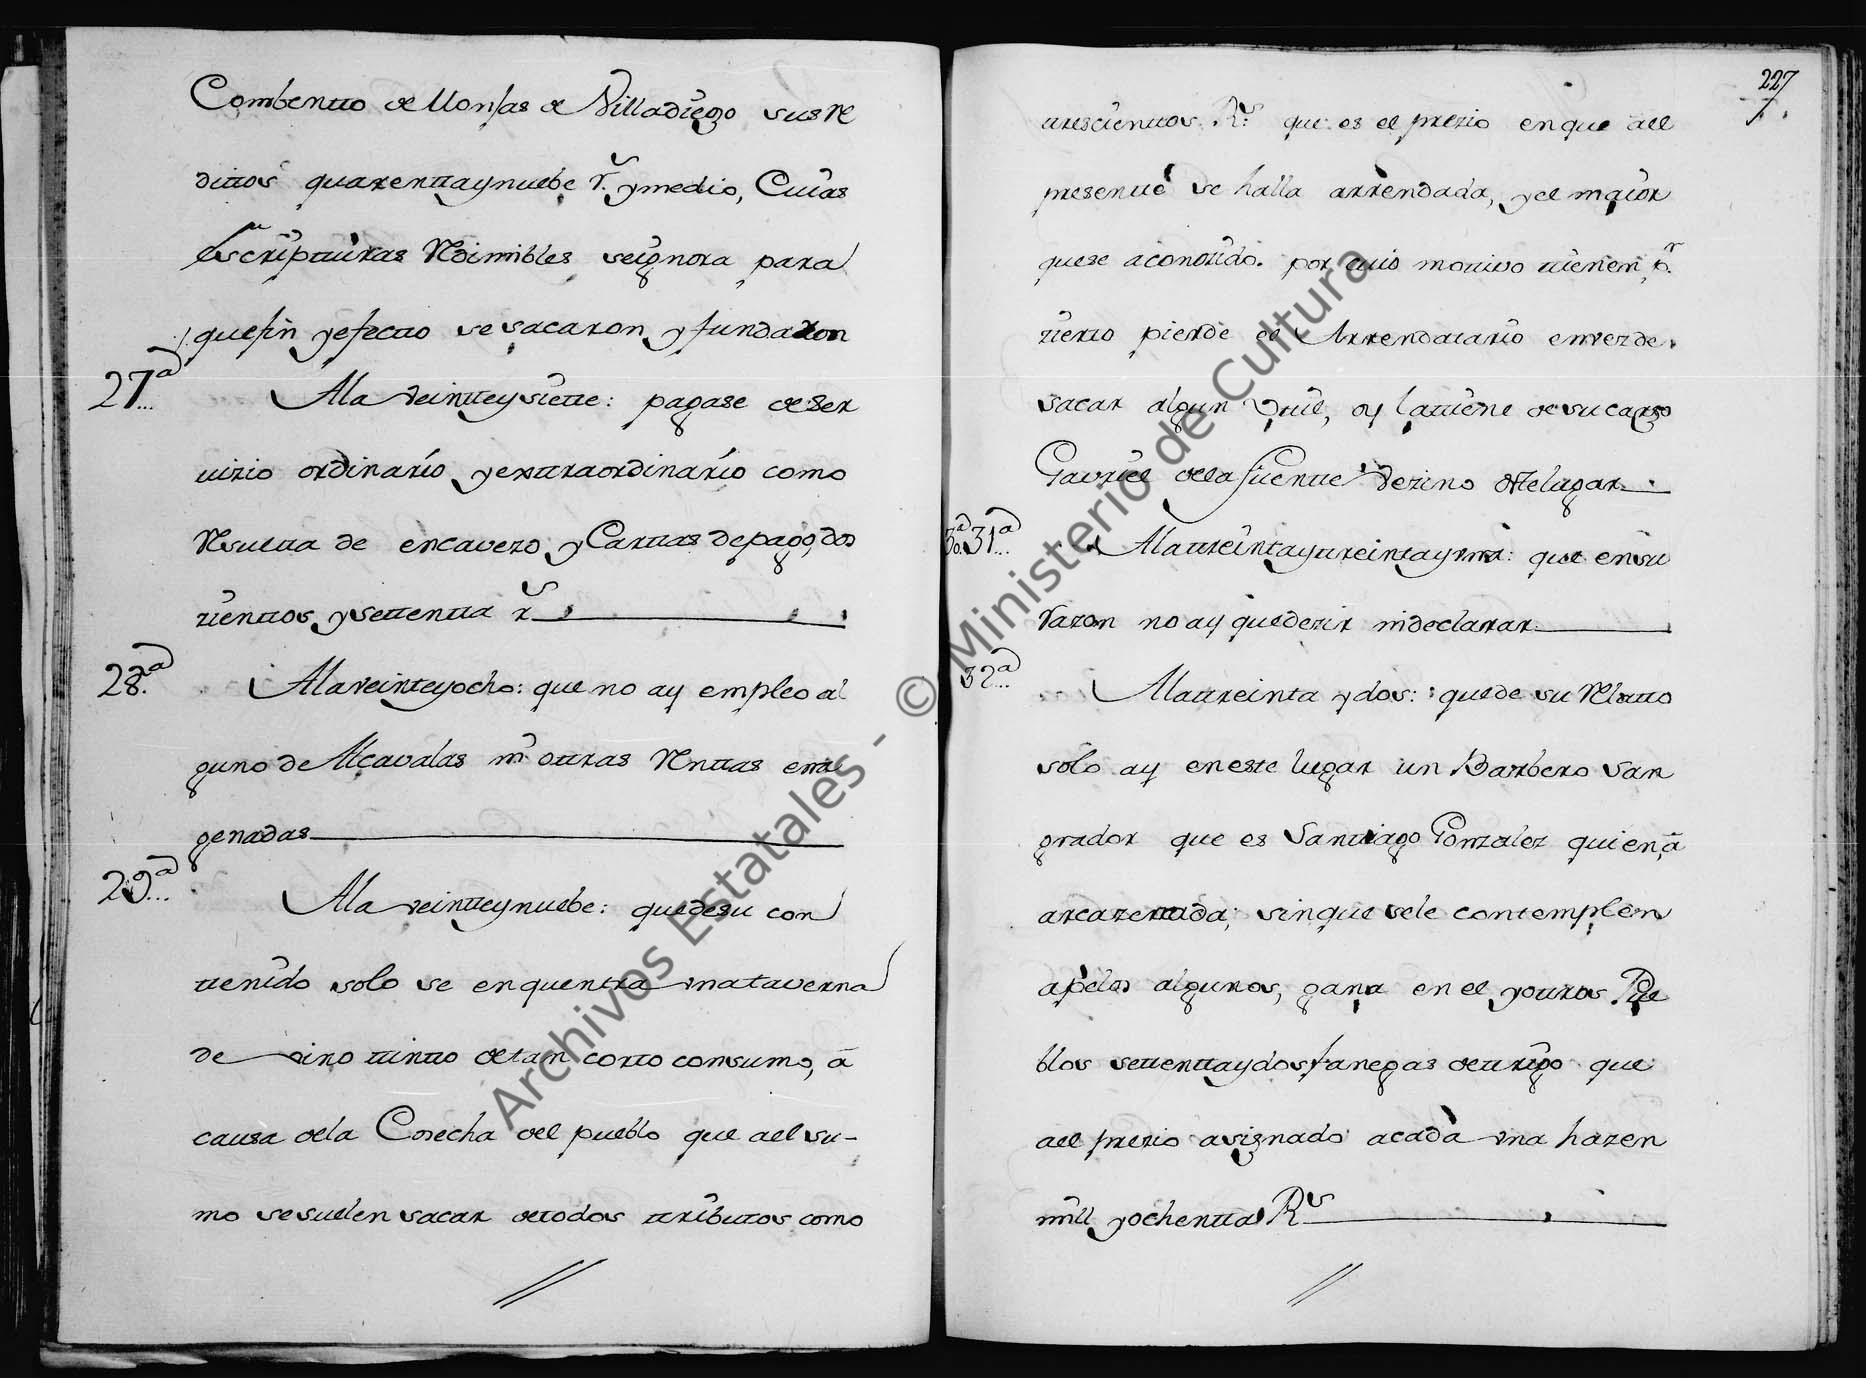 Combentto de Monjas de Villadiego sus re
dittos quarenttaynuebe r.s ymedio, Cuias
escriptturas redimibles seignora para
quefin yefectto se sacaron y fundaron
27.a
Ala veintteysiette: pagase de ser
vizio ordinario yexttraordinario como
resultta de encavezo y Carttas depago, dos
zienttos, ysettentta r.s
28.a
Ala veinteyocho: que no ay empleo al
guno de Alcavalas ni ottras renttas ena
genadas
29.a
Ala veintteynuebe: quedesu con
ttenido solo se enquentra una taverna
de vino ttintto de tan corto consumo, á
causa dela Cosecha del pueblo que ael su-
mo sesuelen sacar de todos ttributos como
227
ttrescienttos R.s que es el prezio enque ael
presentte se halla arrendada, y el maior
quese a conozido. por cuio mottivo ttienen p.r
zierto pierde el Arrendatario envezde
sacar algun util, oy lattiene de su cargo
Gavriel dela fuentte vezino deste lugar
30.a 31.a
Alattreintayttreintayuna: que ensu
razon no ay quedezir nideclarar
32.a
Alattreinta ydos: quede su relatto
solo ay eneste lugar un Barbero San
grador que es Santtiago Gonzalez quien, á
arcazenttada, sinque sele contemplen
apelos algunos, gana en el yottros Pue
blos settenttaydos fanegas de ttrigo que
ael prezio asignado acada una hazen
mill yochentta R.s
Archivos Estatales - © Ministerio de Cultura